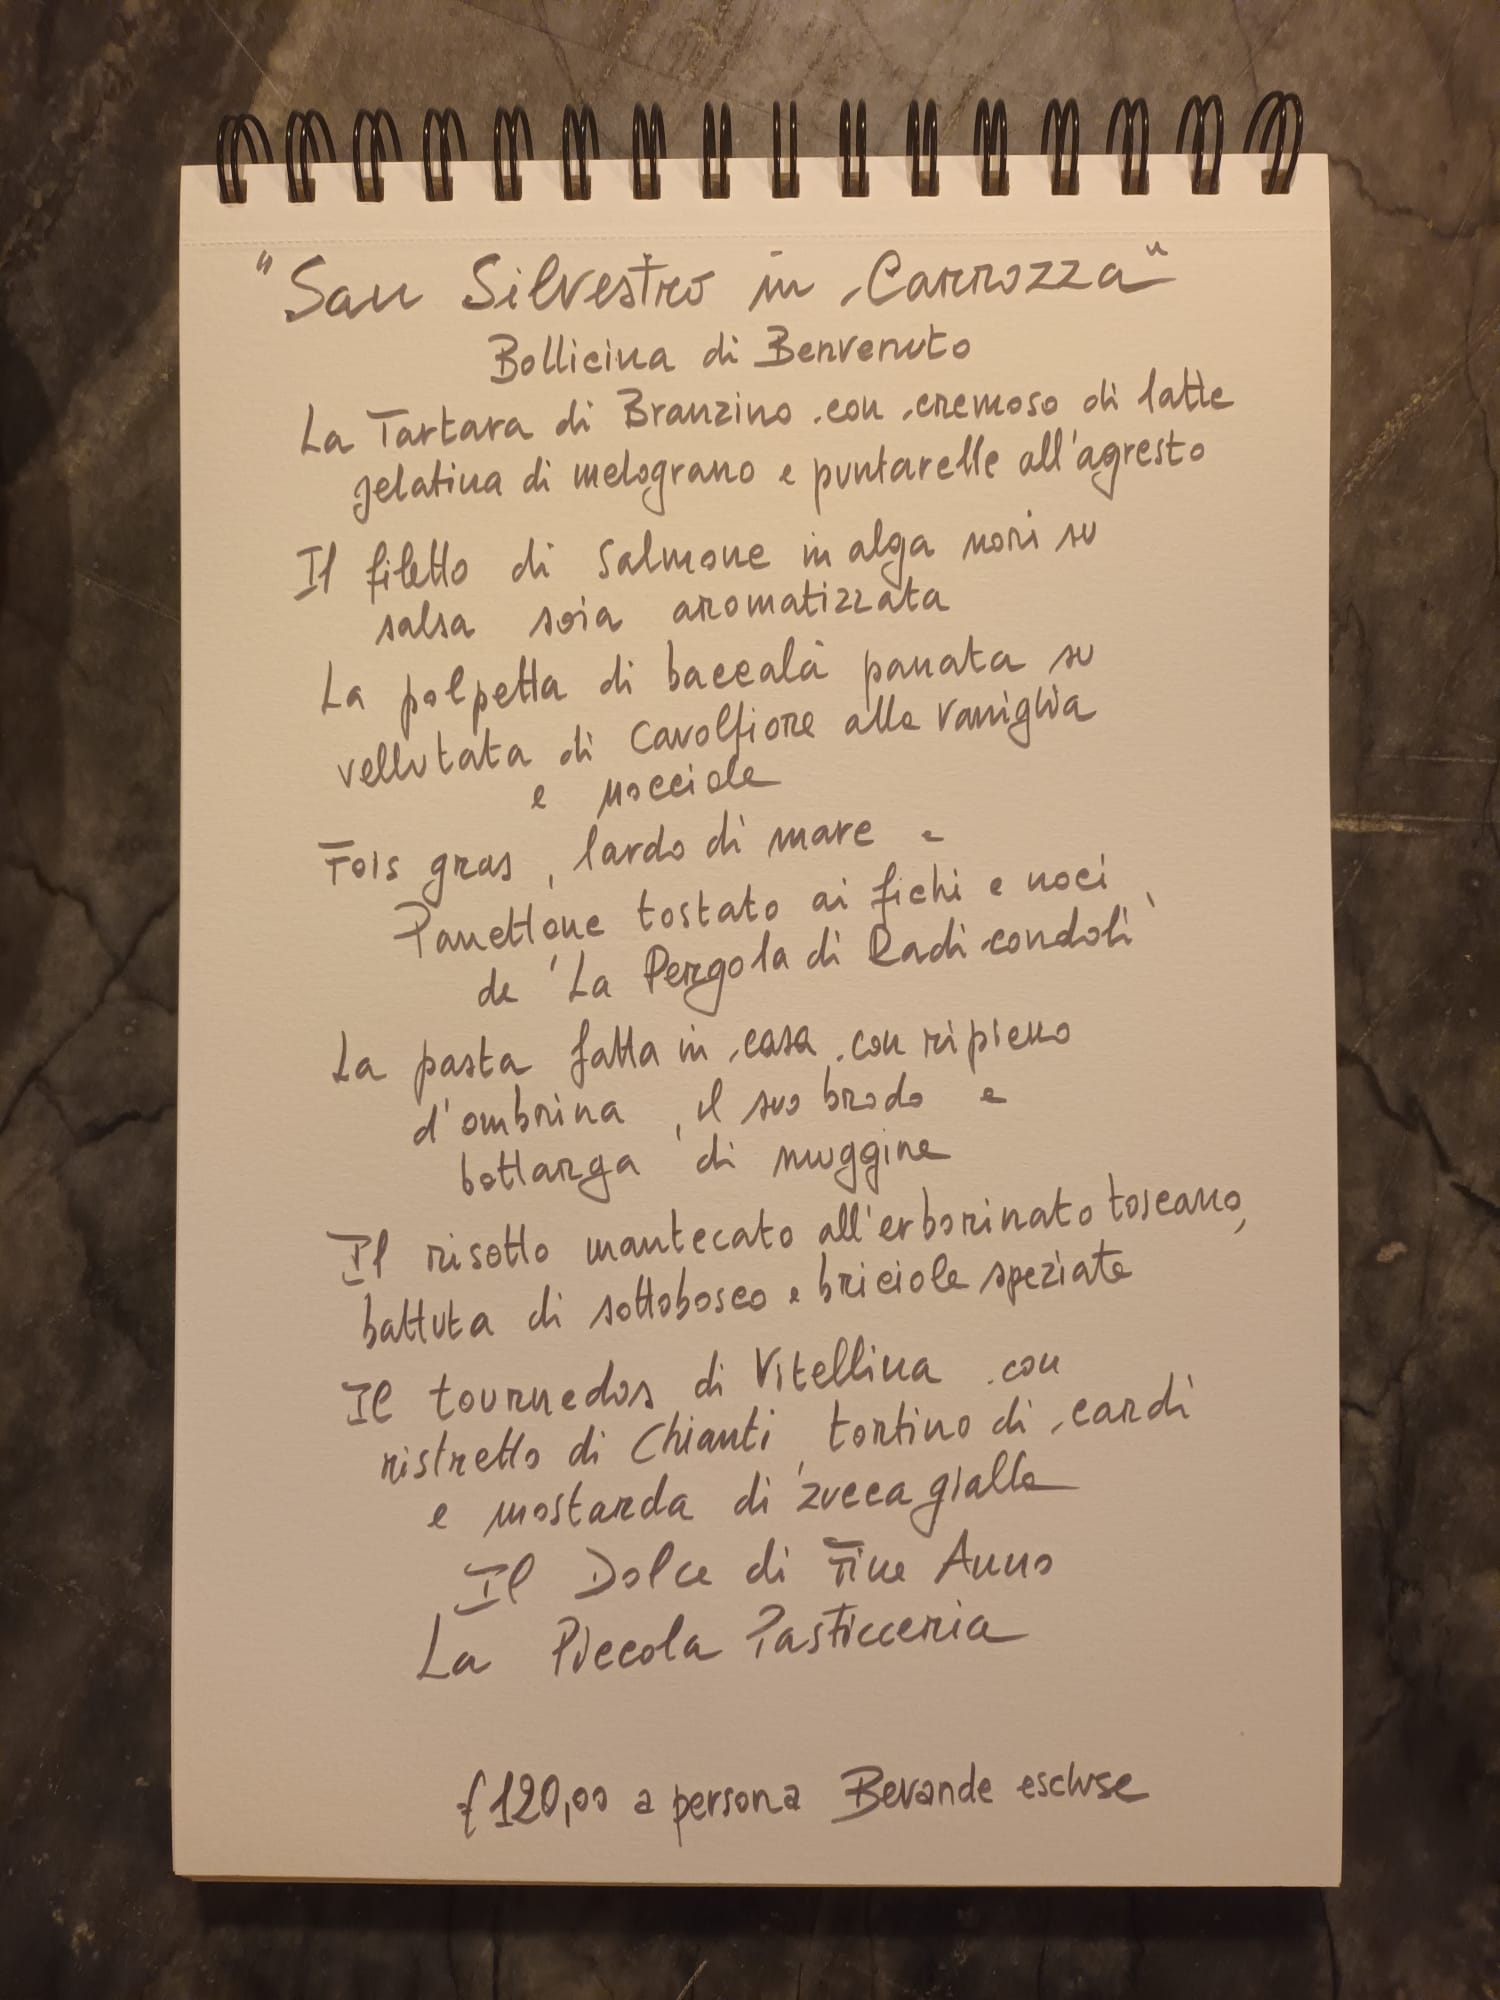 "San Silvestro in Carrozza"
Bollicina di Benvenuto
La Tartara di Branzino con cremoso di latte
gelatina di melograno e puntarelle all'agresto
Il filetto di Salmone in alga nori su
salsa soia aromatizzata
La polpetta di baccalà panata su
vellutata di Cavolfiore alla vaniglia
e nocciole
Fois gras, lardo di mare e
Panettone tostato ai fichi e noci
de 'La Pergola di Radicondoli'
La pasta fatta in casa con ripieno
d'ombrina, il suo brodo e
bottarga di muggine
Il risotto mantecato all'erborinato toscano,
battuta di sottobosco e briciole speziate
Il tournedos di Vitellina con
ristretto di Chianti, tortino di cardi
e mostarda di zucca gialla
Il Dolce di Fine Anno
La Piccola Pasticceria
€120,00 a persona Bevande escluse